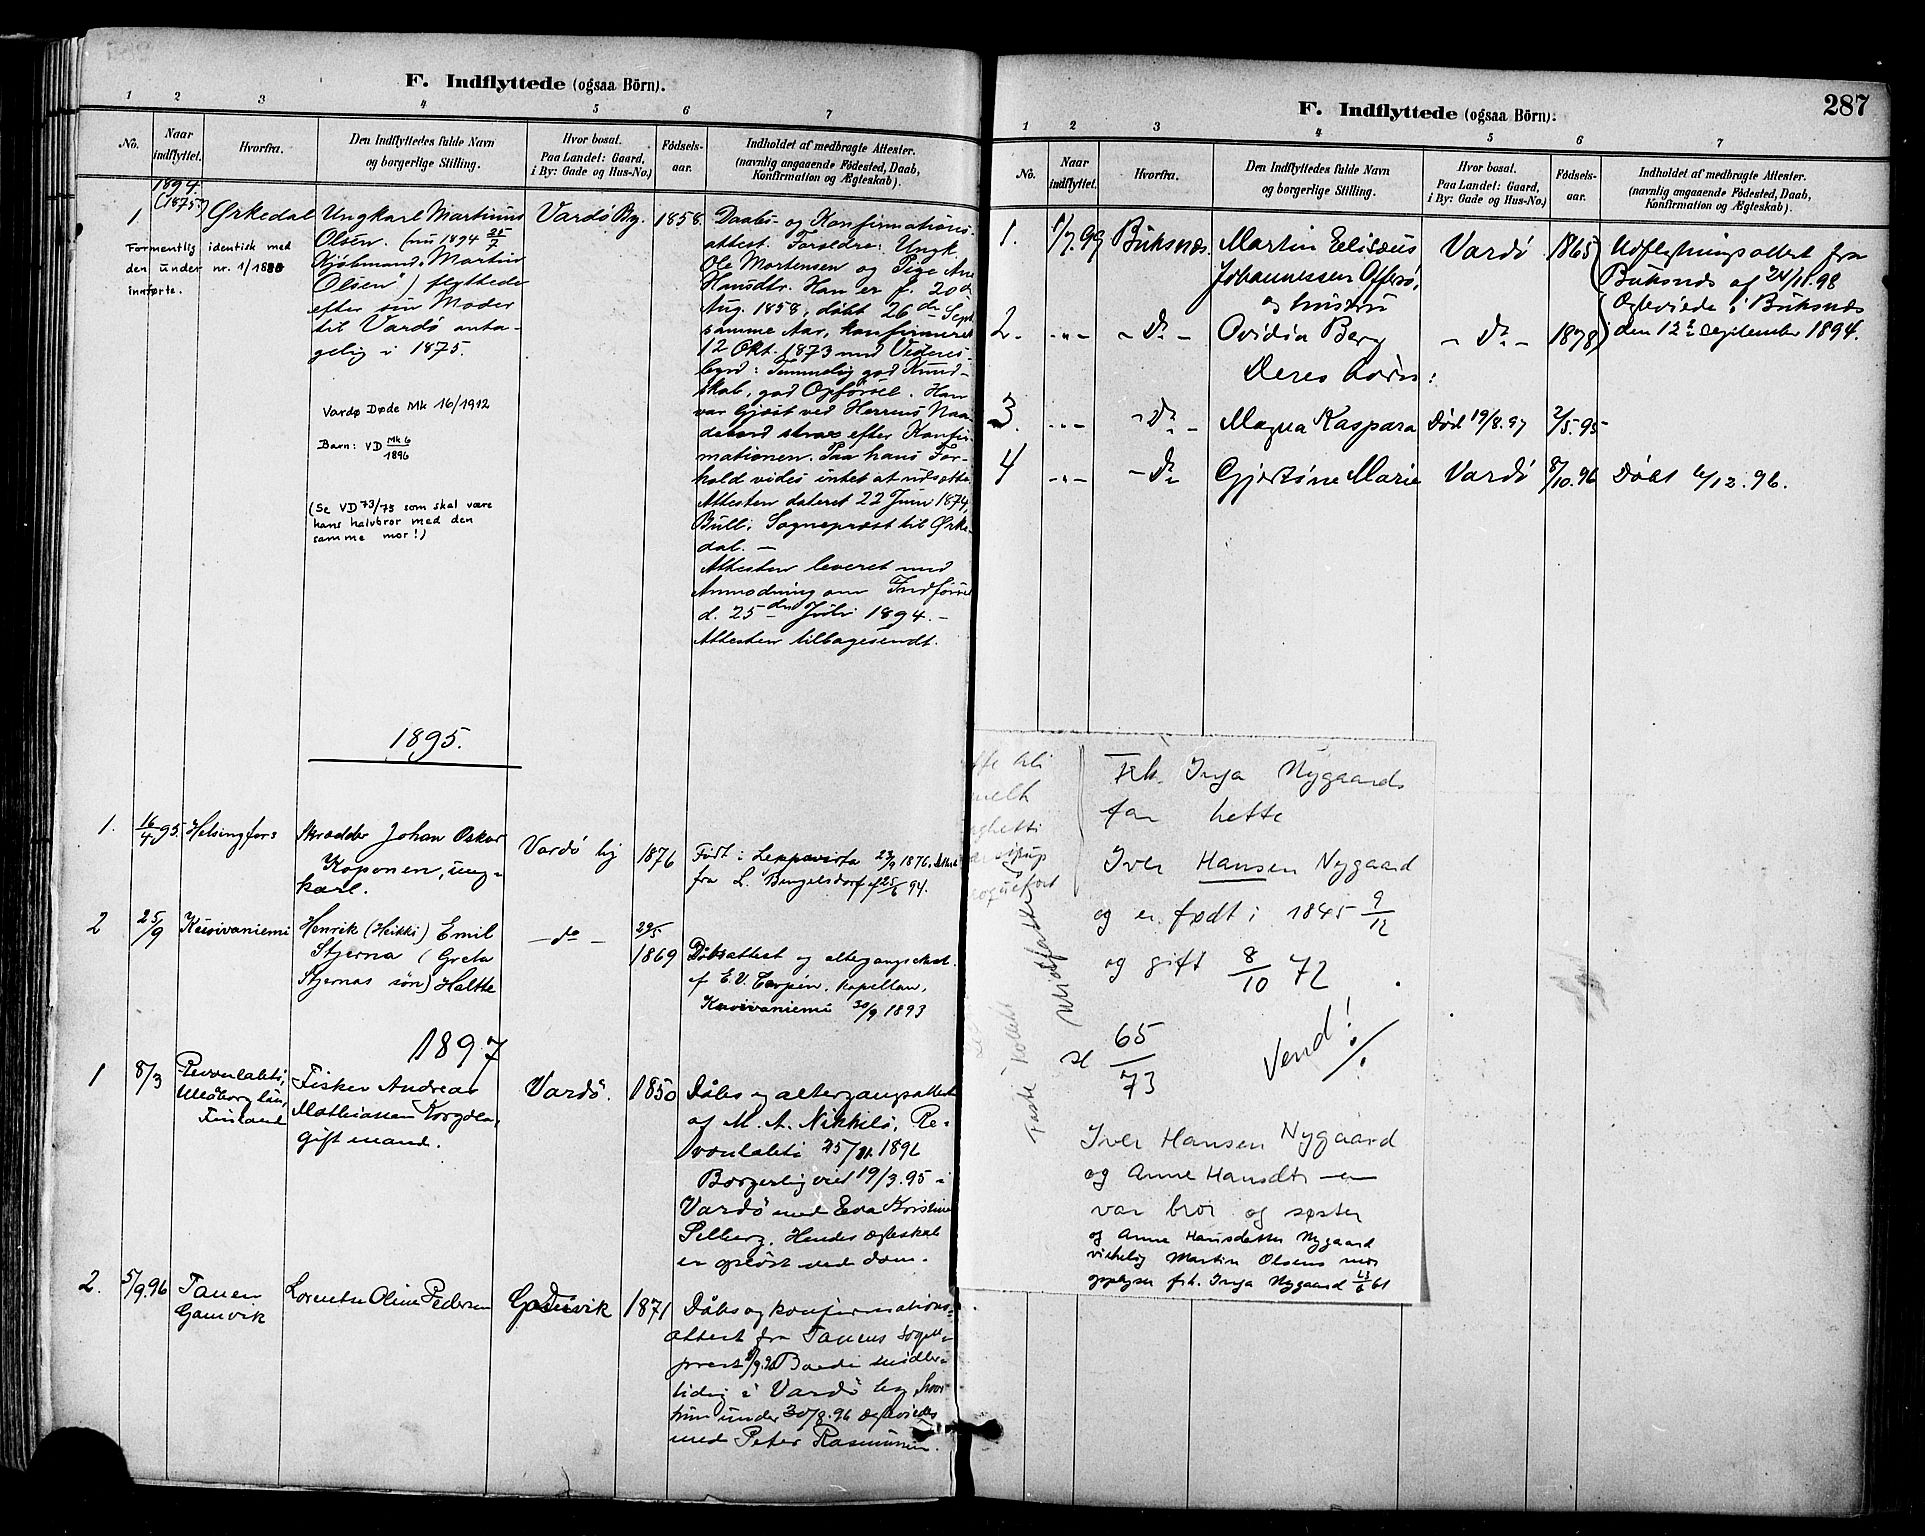 F. Indflyttede (ogsaa Börn).
1 2 3 4 5 6 7
No.
Naar
indflyttet.
Hvorfra.
Den Indflyttedes fulde Navn
og borgerlige Stilling.
Hvor bosat.
Paa Landet: Gaard,
i By: Gade og Hus-No.)
Födsels-
aar.
Indholdet af medbragte Attester.
(navnlig angaaende Födested, Daab,
Konfirmation og Ægteskab).
1894.
(1875.)
1
Ørkedal
Ungkarl Martinus
Olsen. (nu 1894 25/7
Kjøbmand "Martin
Olsen") flyttede
efter sin Moder
til Vardö anta-
gelig i 1875.
Vardö By.
1858.
Daabs- og Konfirmations-
attest. Forældre: Ungk.
Ole Mortensen og Pige Ane
Hansdtr. Han er f. 20de
Aug. 1858, døbt 26de Sept.
samme Aar, konfirmeret
12 Okt. 1873 med Vidnes-
byrd: Temmelig god Kund-
skab, god Opførsel. Han
var Gjæst ved Herrens Naa-
debord strax efter Konfir-
mationen. Paa hans For-
hold vides intet at udsætte.
Attesten dateret 22 Juni 1874,
Bull, Sognepræst til Ørke-
dal. —
Attesten leveret med
Anmodning om Indførsel
d. 25de Juli 1894. —
Attesten tilbagesendt.
Formentlig identisk med
den under nr. 1/1880
innførte.
Vardø Døde Mk 16/1912
Barn: VD Mk 6/1896
(Se VD 73/75 som skal være
hans halvbror med den
samme mor!)
1895.
1.
16/4 95.
Helsingfors
Skrædder Johan Oskar
Koponen, ung-
karl.
Vardö by
1876
Født i Leppavirta 23/9 1876. Attest
fra L. Bengelsdorf af 25/6 94.
2
25/9
Kuivaniemi
Henrik (Heikki) Emil
Stjerna (Greta
Stjernas søn) Haltte
— do —
29/5
1869
Dåbsattest og altergangsattest
af E. V. , kapellan,
Kuivaniemi 30/9 1893
1897
1
8/3
Revonlahti,
Uleåborg län,
Finland
Fisker Andreas
Mathiassen
gift mand.
Vardö.
1850
Dåbs og altergangsattest
af M. A. Nikkilä, Re-
vonlahti 25/11 1896
Borgerlig viet 19/3.95 i
Vardö med Eva Kristine
Selberg. Hendes ægteskab
er opløst ved dom.
2.
5/9.96
Tanen
Gamvik
Lorentse Oline Pedersen
Gamvik
1871
Dåbs og konfirmations-
attest fra Tanens Sogne-
præst 5/9.96 Boede midler-
tidig i Vardö by, hvor
hun under 30/8.96 ægteviedes
med Peter Rasmussen.
287
F. Indflyttede (ogsaa Börn):
1 2 3 4 5 6 7
No.
Naar
indflyttet.
Hvorfra.
Den Indflyttedes fulde Navn
og borgerlige Stilling.
Hvor bosat.
Paa Landet: Gaard,
i By: Gade og Hus-No.)
Födsels-
aar.
Indholdet af medbragte Attester.
(navnlig angaaende Födested, Daab,
Konfirmation og Ægteskab).
1.
1/7.99
Buksnæs.
Martin Elisæus
Johannessen Offersö,
og hustru
Vardö
1865
Udflytningsattest fra
Buksnæs af 24/11.98
Ægteviede i Buksnæs
den 12te September 1894.
2.
-"-
- Do -
Ovidia Berg
- Do -
1878
Deres börn:
3.
-"-
- Do -
Magna Kaspara
Död 19/8.97
2/5.95
4
-"-
- Do
Gjertine Marie
Vardö
8/10.96
Döbt 6/12.96.
Frk. Inga Nygaards
far hette
Iver Hansen Nygaard
og er født i 1845 9/12
og gift 8/10 72.
se 65/73
Vend!
Iver Hansen Nygaard
og Anne Hansdtr —
var bror og søster
og Anne Hansdatter Nygaard
virkelig Martin Olsens mor
opplyser frk. Inga Nygaard 23/6 61